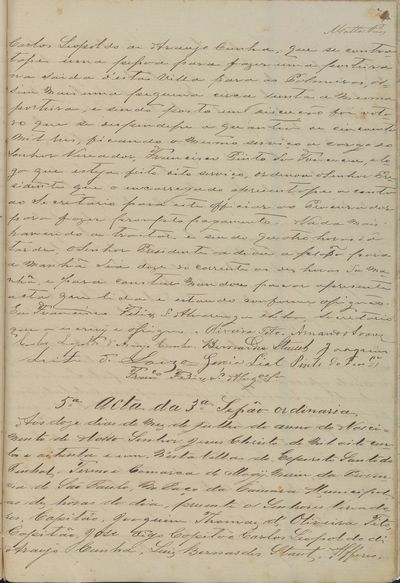 Carlos Leopoldo de Araujo Cunha, que se contra
tasse uma pessoa para fazer uma porteira
na saida d'esta Villa para as Palmeiras, as
sim mais uma pequena cerca junta a mesma
porteira, e sendo posto em discussão foi vota
do que se despendesse a quantia de cincoenta
mil reis, ficando o mesmo serviço a cargo do
Senhor Vereador, Francisco Pinto da Fonceca, e lo
go que esteja feito dito serviço, ordenou o Senhor Pre
sidente que o encarregado apresentasse a conta
ao Secretario para este officiar ao Procurador
para fazer prompto pagamento. Nada mais
havendo a tratar e sendo quatro horas da
tarde o Senhor Presidente adiou a sessão para
a manhã dia doze do corrente as dez horas da ma
nhã e para constar mandou lavrar a presente
acta que lida e estando conforme assignão.
Eu Francisco Felix secretario
que a escrevi e assigno. Oliveira Tito
Carlos Leopoldo d'Araujo Cunha Bernardes Staut Joaquim
5ª Acta da 3ª Sessão ordinaria
Aos doze dias do Mez de Julho do anno do Nasci
mento de Nosso Senhor Jesus Christo de Mil oito cen
tos e oitenta e um. Nesta villa do Espirito Santo do
Pinhal, Termo e Comarca de Mogy Mirim da Provin
cia de São Paulo, no Paço da Camara Municipal
as dez horas do dia, presente os Senhores vereado
res, Capitão, Joaquim Thomaz d'Oliveira Tito,
Capitão, José Capitão Carlos Leopoldo de
Araujo Cunha, Luiz Bernardes Staut,